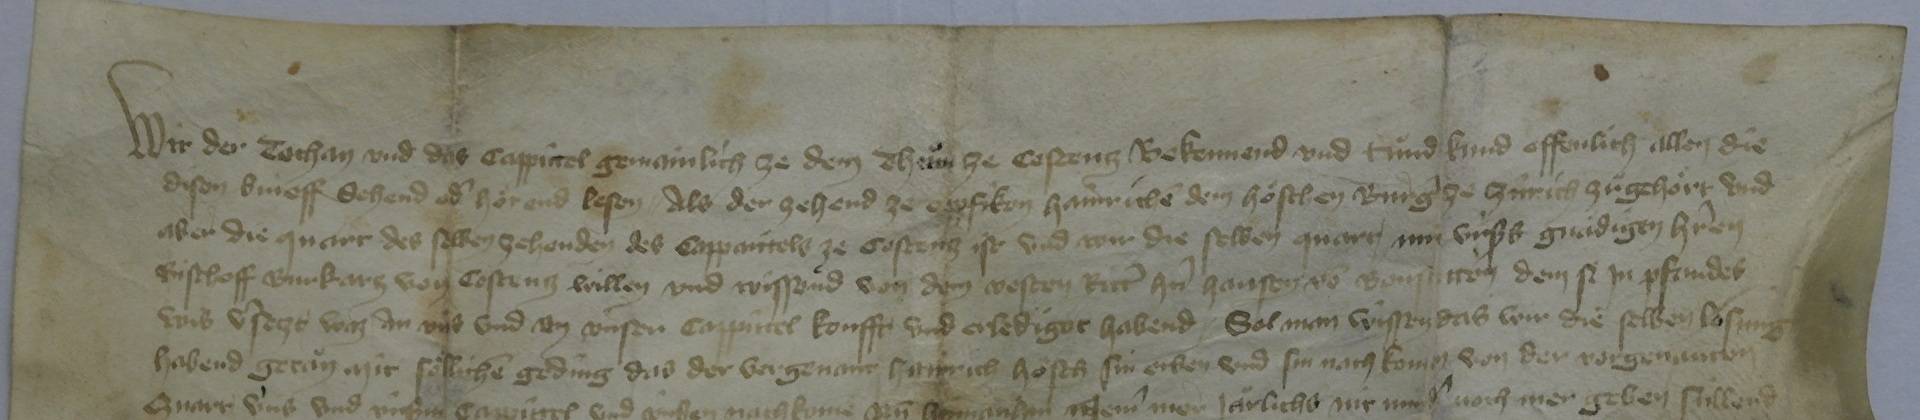 Wir der Techan vnd das Cappittel gemainlich ze dem Thuͦm ze Costentz Bekennend vnd tuͦnd kund offenlich allen die
disen brieff Sehend od' hörend lesen Als der zehend ze Opfikon hainrichē dem höschen Burg' ze Zürich zuͦgehört vnd
aber die quart des selben zehenden des Cappittels ze Costentz ist vnd wir die selben quart mit vnsers gnädigen h'ren
Bischoff Burkartz von Costentz willen vnd wissend von dem vesten Ritt' h'n hansen vō Bonstetten dem si In pfandes
wis v'setzt waz An vns vnd an vnsern Cappittel koufft vnd erlediget habend Sol man wissen das wir die selben losung
habend getan mit sölliche geding das der vorgenant hainrich hösch sin erben vnd sin nachkomen von der vorgenanten
Quart vns vnd vnserm Cappittel vnd vnsern nachkomē mer Järlichs nit noch mer geben süllend